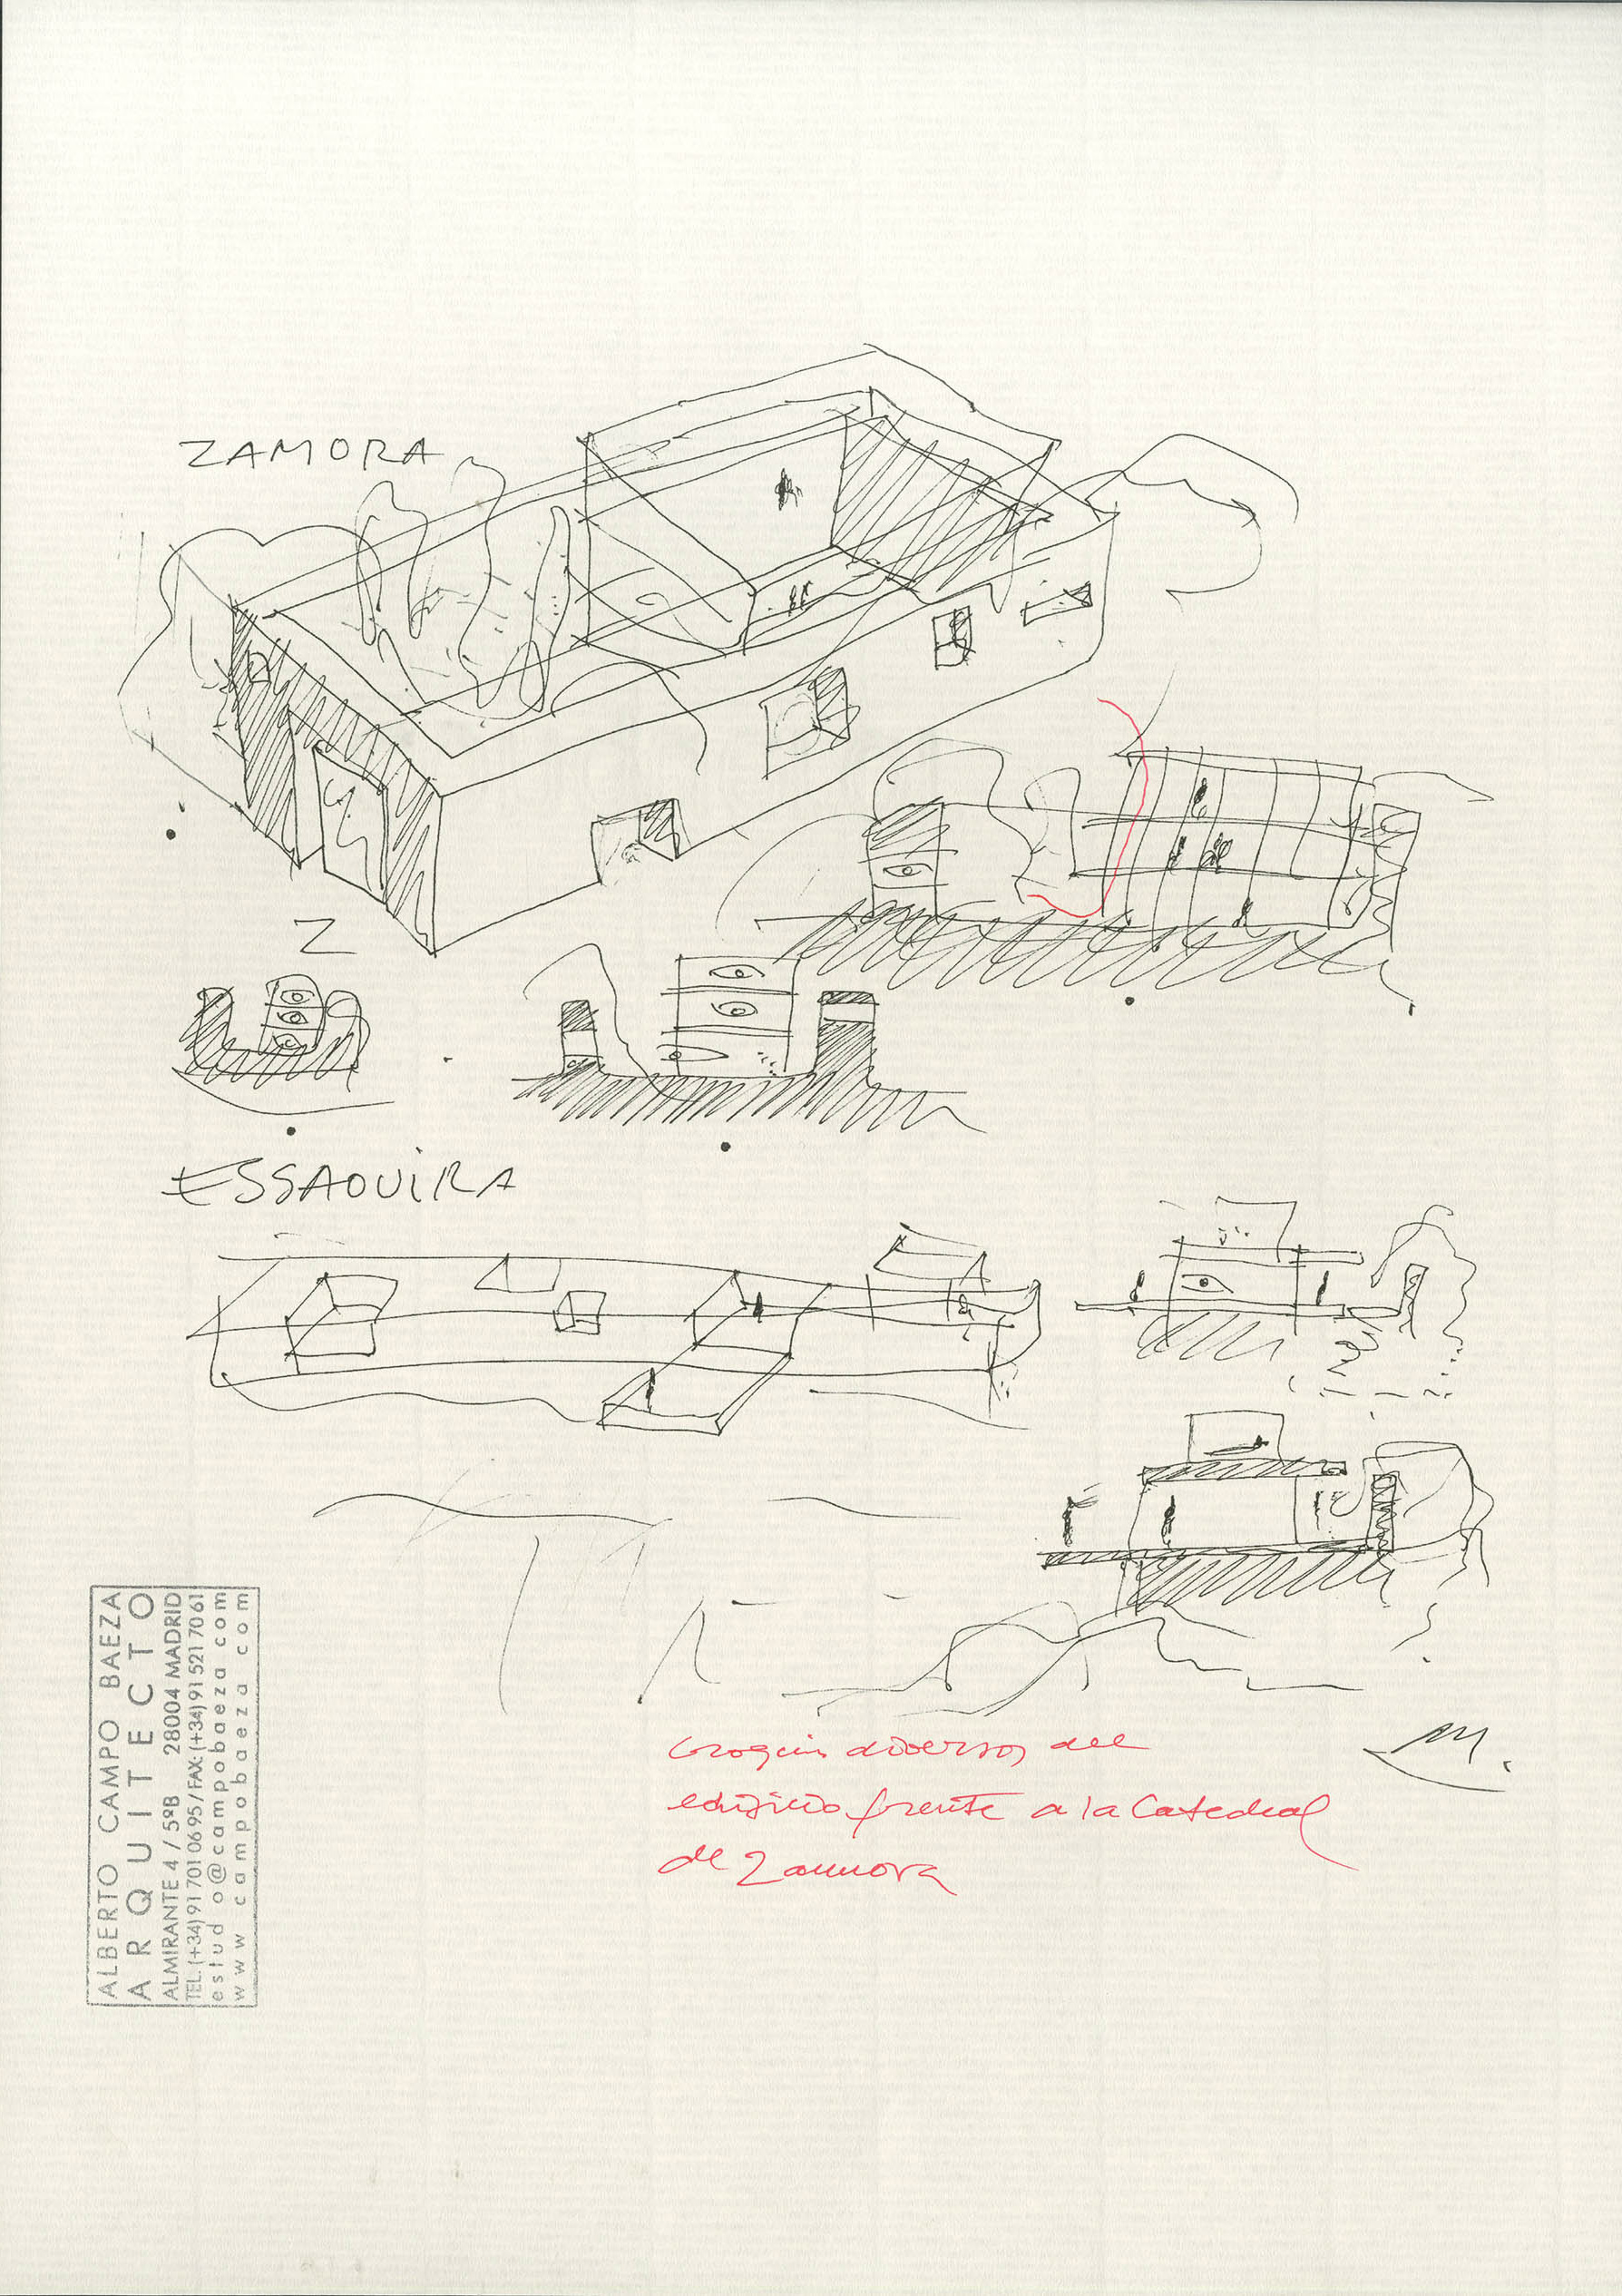 ZAMORA
Z
ESSAOUIRA
croquis diversos del
edificio frente a la Catedral
de Zamora
M.
ALBERTO CAMPO BAEZA
ARQUITECTO
ALMIRANTE 4 / 5ºB 28004 MADRID
TEL. (+34) 91 701 06 95 / FAX: (+34) 91 521 70 61
estud o@campobaeza com
www campobaeza com